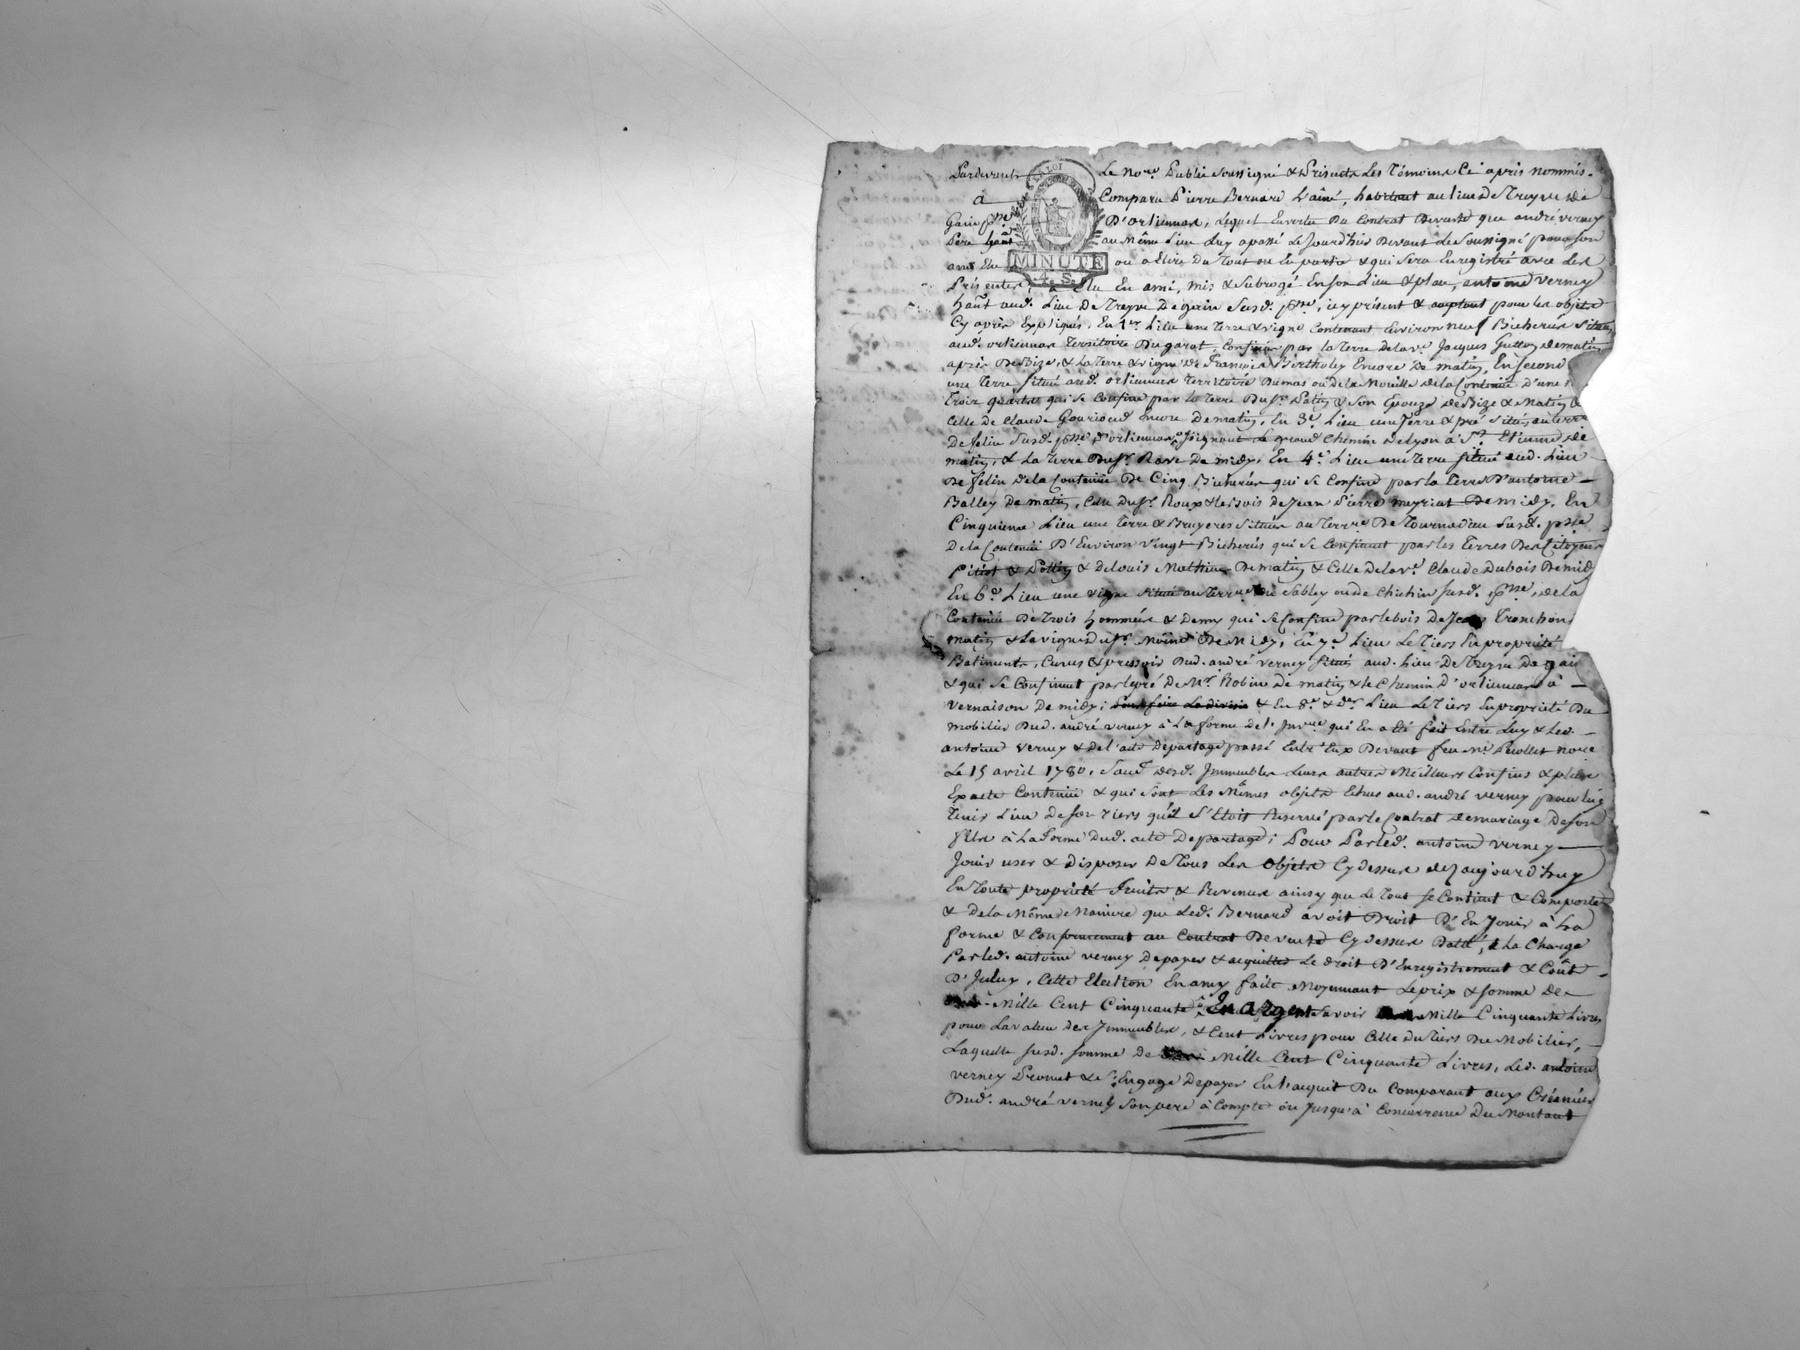 Pardevant Le No.re Public soussigné & Présents Les Témoins Ci après nommés.
a Comparu Pierre Bernard L'aîné, habitant au lieu de Treyve de
Gain p.sse D'orliennas, Lequel Envertu Du Contrat Devente que andré verney
Père hant au même Lieu Luy a passé Le Jourd'hui Devant Le Soussigné pour son
ami Elu ou a Elire Du Tout ou En partie & qui sera Enregistré avec Les
Présentes, a Elu En ami, mis & Subrogé En son Lieu & place, antoine verney
hant aud. Lieu de Treyve De gain Susd. p.sse, icy présent & acceptant pour les objets
Cy après Expliqués. En 1er Lieu une terre & vigne Contenant Environ neuf Bicherées Situées
aud. orliennas Territoire Du garat, Confinées par la terre de la v.e Jacques Guillon de matin
après De Bize, & La terre & vigne De François Bertholey Encore De matin, En second
une terre située aud. orliennas territoire Dumas ou de la Nouille de la Contenue d'une
trois quarts qui se Confine par la terre Du Sr. Patin & son Epouze de Bize & Matin &
Celle de Claude Gourioud Encore De matin, En 3e Lieu une Terre & pré Situés au terre
De félin Susd. p.sse d'orliennas Joignant Le grand Chemin de Lyon à St. Etienne de
matin, & La terre Du Sr. Roux De midy, En 4e Lieu une terre située aud. Lieu
De félin de la Contenue De Cinq Bicherées qui se Confine par la terre D'antoine
Balley De matin, Celle du Sr. Roux & les Bois de Jean Pierre meyriat De midy. En
Cinquieme Lieu une terre & Bruyeres Situées au Terre De Tournadieu Susd. p.sse
De la Contenue D'Environ vingt Bicherées qui se Confinent par les terres Des Citoyens
Pitiot & Pollin & de Louis Mathieu De matin & Celle de la v.e Claude Dubois De midy
En 6e Lieu une vigne située au Terre Du Sabley ou de Chichin susd. p.sse, de la
Contenue De Trois hommées & Demy qui se Confine par le bois de Jean Tronchon
matin & La vigne du Sr. Moine De Midy, En 7e Lieu Le Tiers En propriété
Batiments, Cuves & pressoir Dud. andré verney situés aud. Lieu De Treyve De gain
& qui se Confinent par le pré De Mr. Robin De matin & le Chemin D'orliennas à
vernaison De midy; & En 8e & Der Lieu Le Tiers En propriété Du
mobilier Dud. andré verney à La forme de l'Inv.re qui En a été fait Entre Luy & Led.
antoine verney & de l'acte De partage passé Entr'Eux Devant feu Me. Peillet no.re
Le 15 avril 1780, Sauf desd. Immeubles Leurs autres Meilleurs Confins & plus
Exacte Contenue & qui sont Les Mêmes objets Echus aud. andré verney pour luy
Tenir Lieu De son tiers qu'il s'Etoit Réservé par le Contrat de mariage De son
fils à La forme Dud. acte De partage; Pour Par led. antoine verney
Jouir user & Disposer De Tous Les objets Cy dessus dez aujourd'huy
En Toute propriété fruits & Revenus ainsy que Le Tout se Contient & Comporte
& De la Même Maniere que Led. Bernard avoit Droit D'En Jouir à La
forme & Conformement au Contrat De vente Cy dessus Datté, à La Charge
Par led. antoine verney De payer & acquitter Le droit D'Enregistrement & Coût
D'Iceluy. Cette Election En amy faite Moyennant Le prix & somme De
Mille Cent Cinquante En argent Savoir Mille Cinquante Livres
pour La valeur des Immeubles, & Cent Livres pour Celle du tiers Du Mobilier,
Laquelle susd. somme De Mille Cent Cinquante Livres, Led. antoine
verney Promet & s'Engage De payer En l'acquit Du Comparant aux Créanciers
Dud. andré verney son pere à Compte ou Jusqu'à Concurrence Du Montant
LOI
MINUTE
4. S.